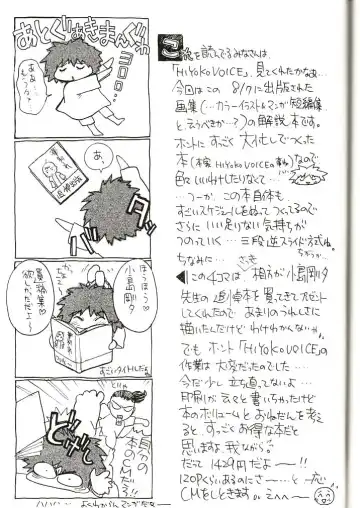 あとがきまんが
ヨロロ…
あ、
ほうほう♡
小島剛夕
貴稿集♡
欲しかったんだよ〜
すごいタイトルだな
自分の
本のCMだろ!!
ハハハ… よくわからんマンガだな…
この本を読んでるみなさんは、
「HIYOKO VOICE」、見てくれたかなぁ…
今回はこの 8/7に出版された
画集(…カラーイラスト&マンガ短編集
と言うべきか…?)の解説本です。
ホントに すっごく 大忙しでつくった
本(本家HIYOKO VOICEの事ね)なので
色々 いいわけしたりなくて…
…つーか、この本自体も
すごいスケジュールをぬって つくってるので
さらに いい足りない気持ちが
つのっていく… 三段逆スライド方式ね。
ちなみに…
◀この4コマは 相方が小島剛夕
先生の 追悼本を買ってきてプレゼント
してくれたので あまりのうれしさに
描いたんだけど わけわかんないッ
でも ホント「HIYOKO VOICE」の
作業は 大変だったのでした…
今だ少し 立ち直ってないよ…
印刷が えらそと書いちゃったけど
本のボリュームと おねだんを考え
ると すっごくお得な本だと
思いますよ 我ながら。
だって 1429円だよ――!!
120Pくらいあるのにさ…… と 一応
CMをしときます。 えへへ〜